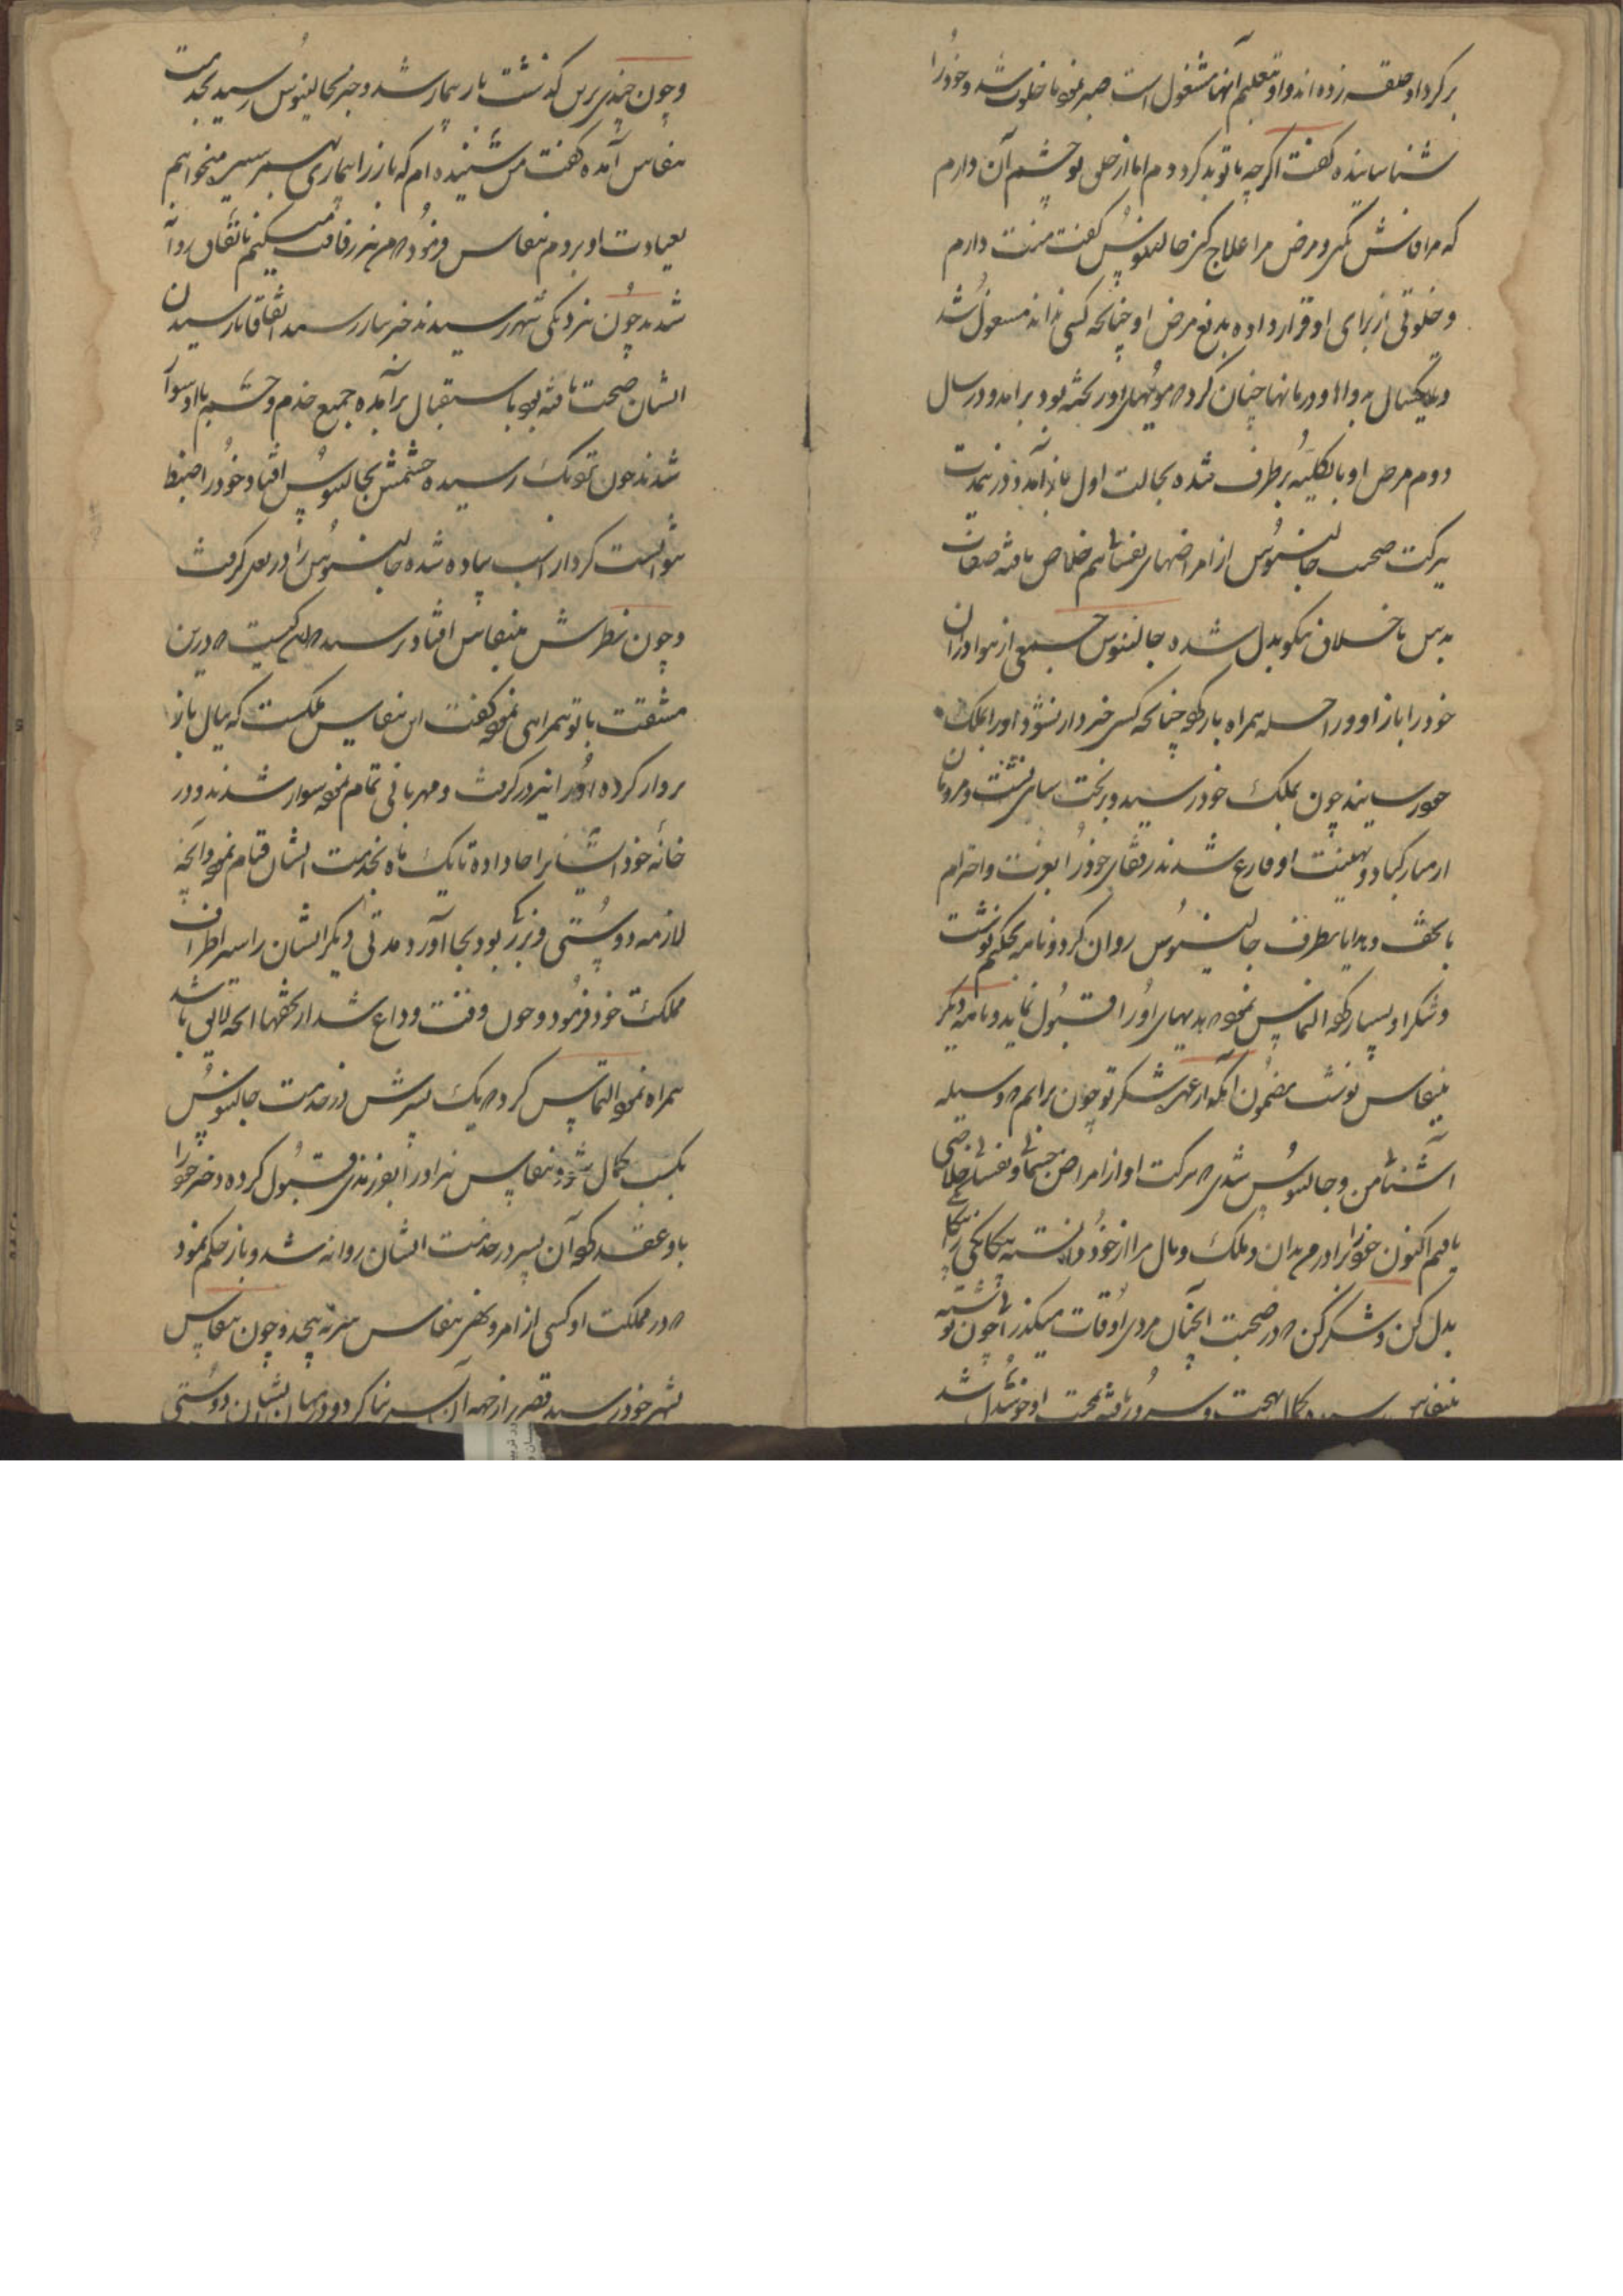 بر کرد او حلقه زده‌اند و او بتعلیم آنها مشغول است صبر نموده تا خلوت شد و خود را
شناسانیده گفت اگر چه با تو بد کرده‌ام اما از خلق تو چشم آن دارم
که مرا فاش نکنی و مرض مرا علاج کنی جالینوس گفت منت دارم
و خلوتی از برای او قرار داده بدفع مرض او چنانکه کسی نداند مشغول شد
و یکسال به دواها و درمانها چنان کرد که مویهای او ریخته بود برآمد و در سال
دوم مرض او بالکلیه برطرف شده بحالت اول باز آمد و در خدمت
برکت صحبت جالینوس از امراضهای نفسانی هم خلاص یافته صفات
بدش باخلاق نیکو بدل شده جالینوس جمعی از هواداران
خود را با زاد و راحله همراه یار کرده چنانکه کسی خبردار نشود او را بملک
خود رسانیدند چون بملک خود رسید و بر تخت شاهی نشست و مردمان
از مبارکباد و تهنیت او فارغ شدند رفقای خود را بعزت و احترام
با تحف و هدایا بطرف جالینوس روان کرد و نامه بحکیم نوشت
و شکر او بسیار کرده التماس نموده که هدیهای او را قبول نماید و نامه دیگر
بنیفاس نوشت مضمون آنکه از عهده شکر تو چون برایم که وسیله
آشنائی من و جالینوس شدی که ببرکت او از امراض جسمانی و نفسانی خلاصی
یافتم اکنون خود را برادر من بدان و ملک و مال مرا از خود دانسته بیگانگی را بیگانگی
بدل کن و شکر کن که در صحبت آنچنان مردی اوقات میگذرانی چون نوشته
بنیفاس رسید بکمال بهجت و سرور یافته بصحت او خوشدل شد
و چون چندی برین گذشت یار بیمار شد و خبر بجالینوس رسید بخدمت
نیفاس آمده گفت من شنیده‌ام که یار را بیماری بهم رسیده میخواهم
بعیادت او بروم نیفاس فرمود که من نیز رفاقت میکنم باتفاق روانه
شدند چون نزدیکی شهر رسیدند خبر بیار رسید اتفاقا تا رسیدن
ایشان صحت یافته بود باستقبال برآمده جمیع خدم و حشم با او سوار
شدند چون نزدیک رسیده چشمش بجالینوس افتاد خود را ضبط
نتوانست کرد از اسب پیاده شده جالینوس را در بغل گرفت
و چون نظرش بنیفاس افتاد پرسید که این کیست که درین
مشقت با تو همراهی نموده گفت این نیفاس ملکست که بیال باز
پرواز کرده او را نیز در بر گرفت و مهربانی تمام نموده سوار شدند و در
خانه خود ایشانرا جا داده تا یک ماه بخدمت ایشان قیام نمود و آنچه
لازمه دوستی و بزرگی بود بجا آورد مدتی دیگر ایشان را سیر اطراف
مملکت خود فرمود و چون وقت وداع شد از تحفها آنچه لایق باشد
همراه نموده التماس کرد که یک پسرش در خدمت جالینوس
بکسب کمال شود و نیفاس نیز او را بفرزندی قبول کرده دختر خود را
باو عقد کرده آن پسر در خدمت ایشان روانه شد و یار حکم نمود
که در مملکت او کسی از امر و نهی نیفاس سر نه پیچد و چون نیفاس
بشهر خود رسید قصری از جهه آن پسر بنا کرد و در میان ایشان دوستی